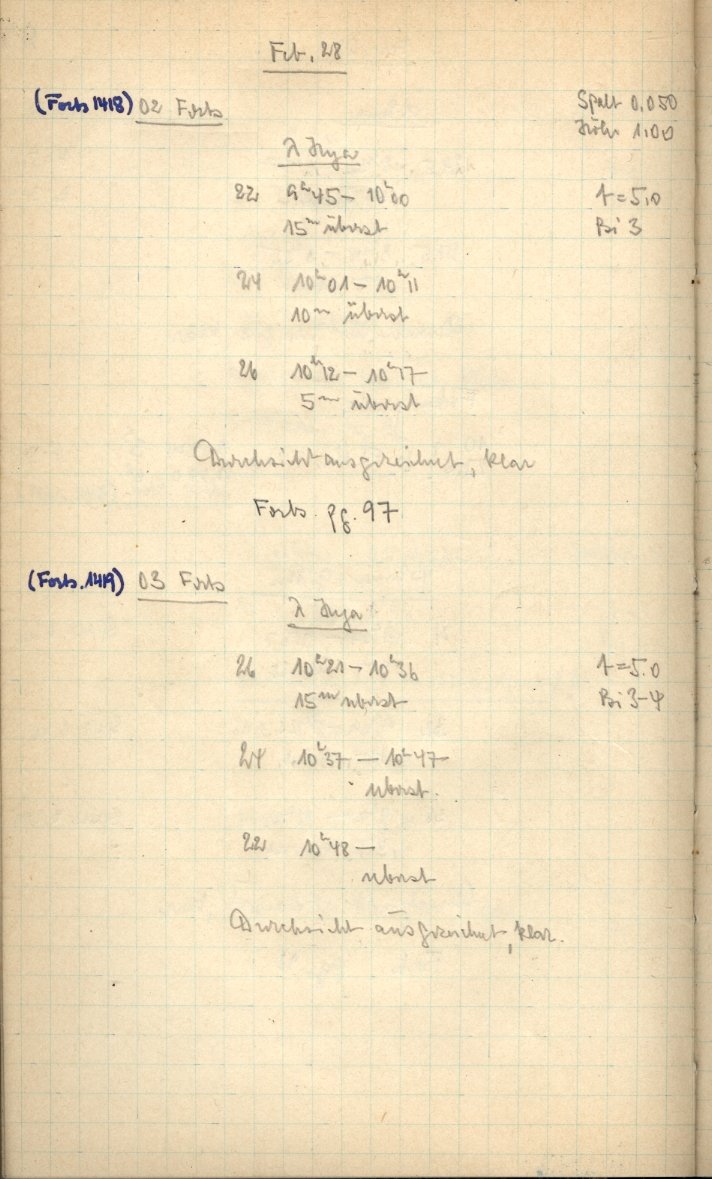 Feb. 28
(Forts 1418) 02 Forts
Spalt 0,050
Höhe 1,00
λ Hya
22 9ʰ45 – 10ʰ00 t = 5,0
15ᵐ überst Bi 3
24 10ʰ01 – 10ʰ11
10ᵐ überst
26 10ʰ12 – 10ʰ17
5ᵐ überst
Durchsicht ausgezeichnet, klar
Forts. pg. 97
(Forts. 1419) 03 Forts
λ Hya
26 10ʰ21 – 10ʰ36 t = 5.0
15ᵐ überst Bi 3-4
24 10ʰ37 – 10ʰ47
überst.
22 10ʰ48 –
überst
Durchsicht ausgezeichnet, klar.